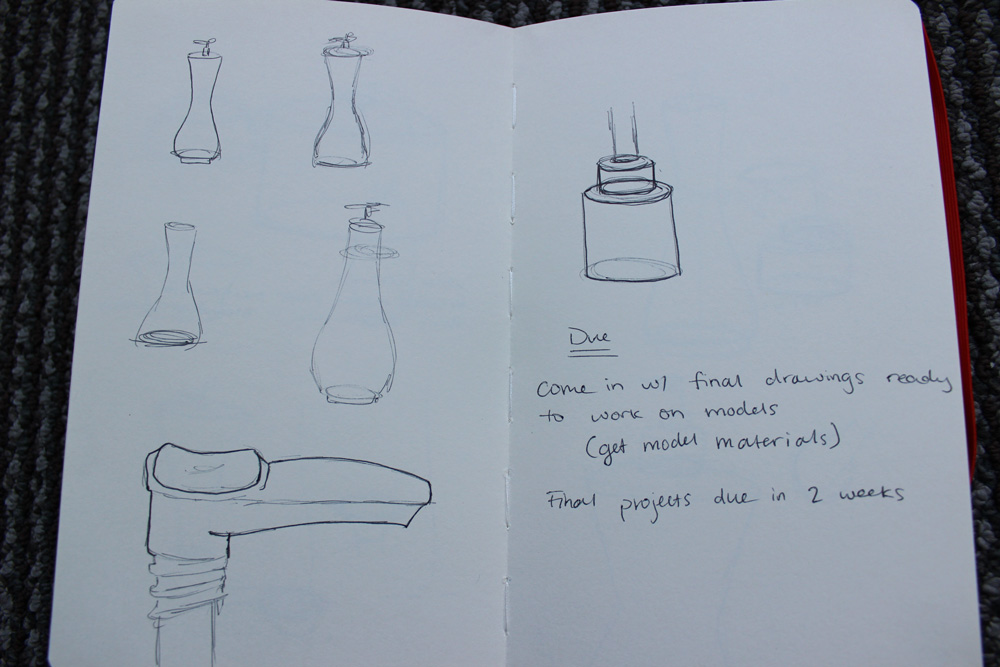 Due
come in w/ final drawings ready
to work on models
(get model materials)
Final projects due in 2 weeks